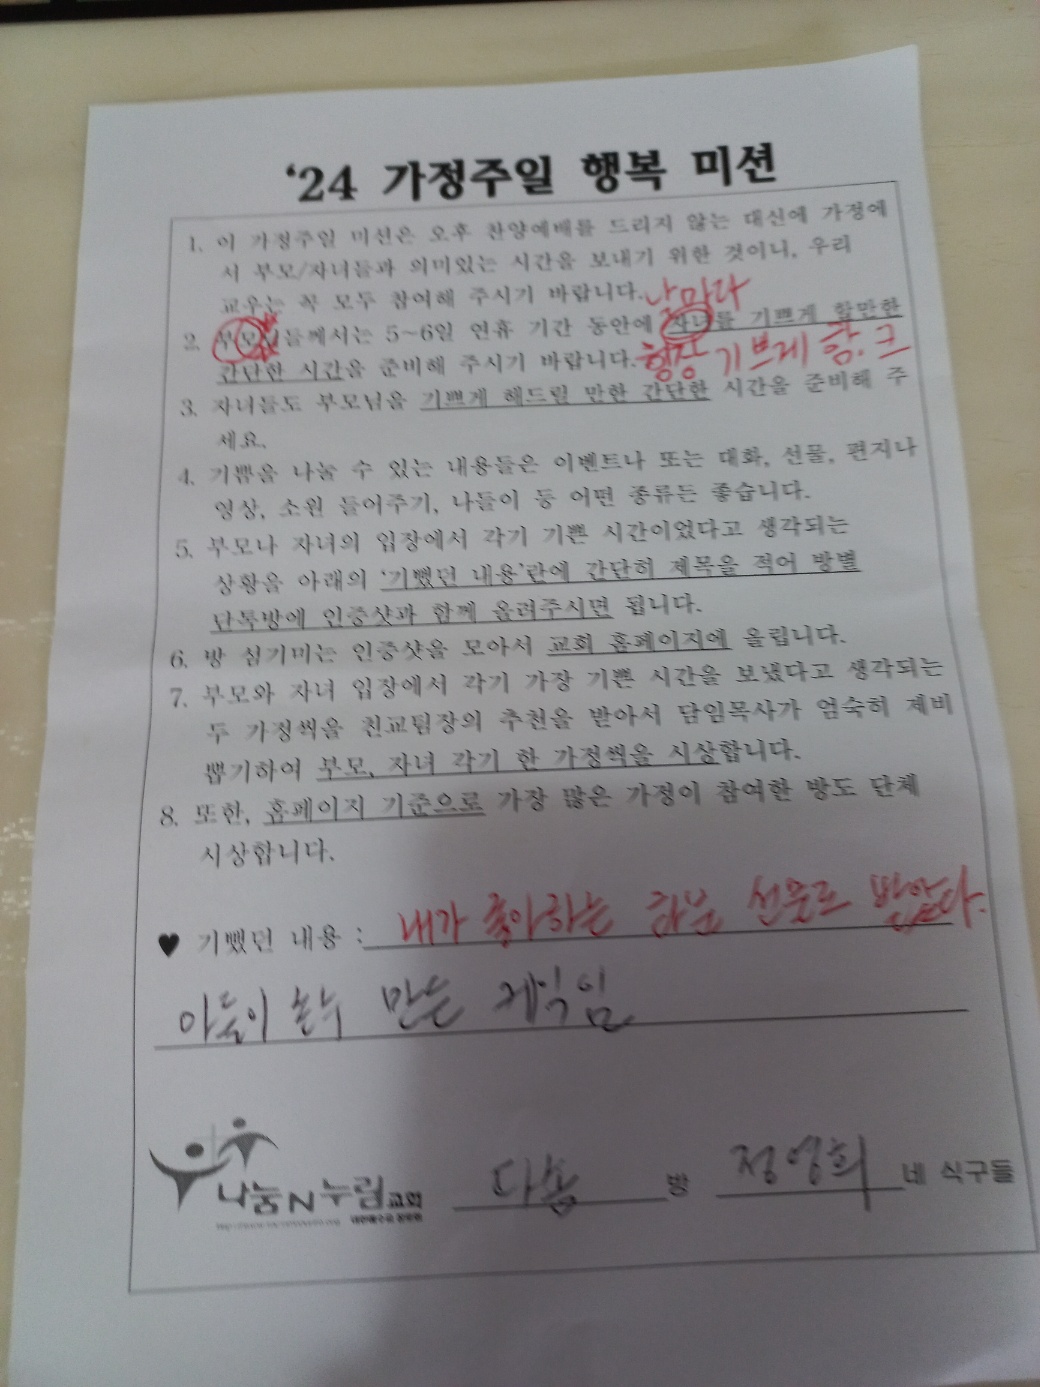 ‘24 가정주일 행복 미션
1. 이 가정주일 미션은 오후 찬양예배를 드리지 않는 대신에 가정에
서 부모/자녀들과 의미있는 시간을 보내기 위한 것이니, 우리
교우는 꼭 모두 참여해 주시기 바랍니다.
날마다
2. 부모님들께서는 5~6일 연휴 기간 동안에 자녀를 기쁘게 할만한
간단한 시간을 준비해 주시기 바랍니다.
항상 기쁘게 함.ㅋ
3. 자녀들도 부모님을 기쁘게 해드릴 만한 간단한 시간을 준비해 주
세요.
4. 기쁨을 나눌 수 있는 내용들은 이벤트나 또는 대화, 선물, 편지나
영상, 소원 들어주기, 나들이 등 어떤 종류든 좋습니다.
5. 부모나 자녀의 입장에서 각기 기쁜 시간이었다고 생각되는
상황을 아래의 ‘기뻤던 내용’란에 간단히 제목을 적어 방별
단톡방에 인증샷과 함께 올려주시면 됩니다.
6. 방 섬기미는 인증샷을 모아서 교회 홈페이지에 올립니다.
7. 부모와 자녀 입장에서 각기 가장 기쁜 시간을 보냈다고 생각되는
두 가정씩을 친교팀장의 추천을 받아서 담임목사가 엄숙히 제비
뽑기하여 부모, 자녀 각기 한 가정씩을 시상합니다.
8. 또한, 홈페이지 기준으로 가장 많은 가정이 참여한 방도 단체
시상합니다.
♥ 기뻤던 내용 : 내가 좋아하는 화분 선물로 받았다.
아들이 손수 만든 케익임
나눔N누림교회
방 정영희 네 식구들